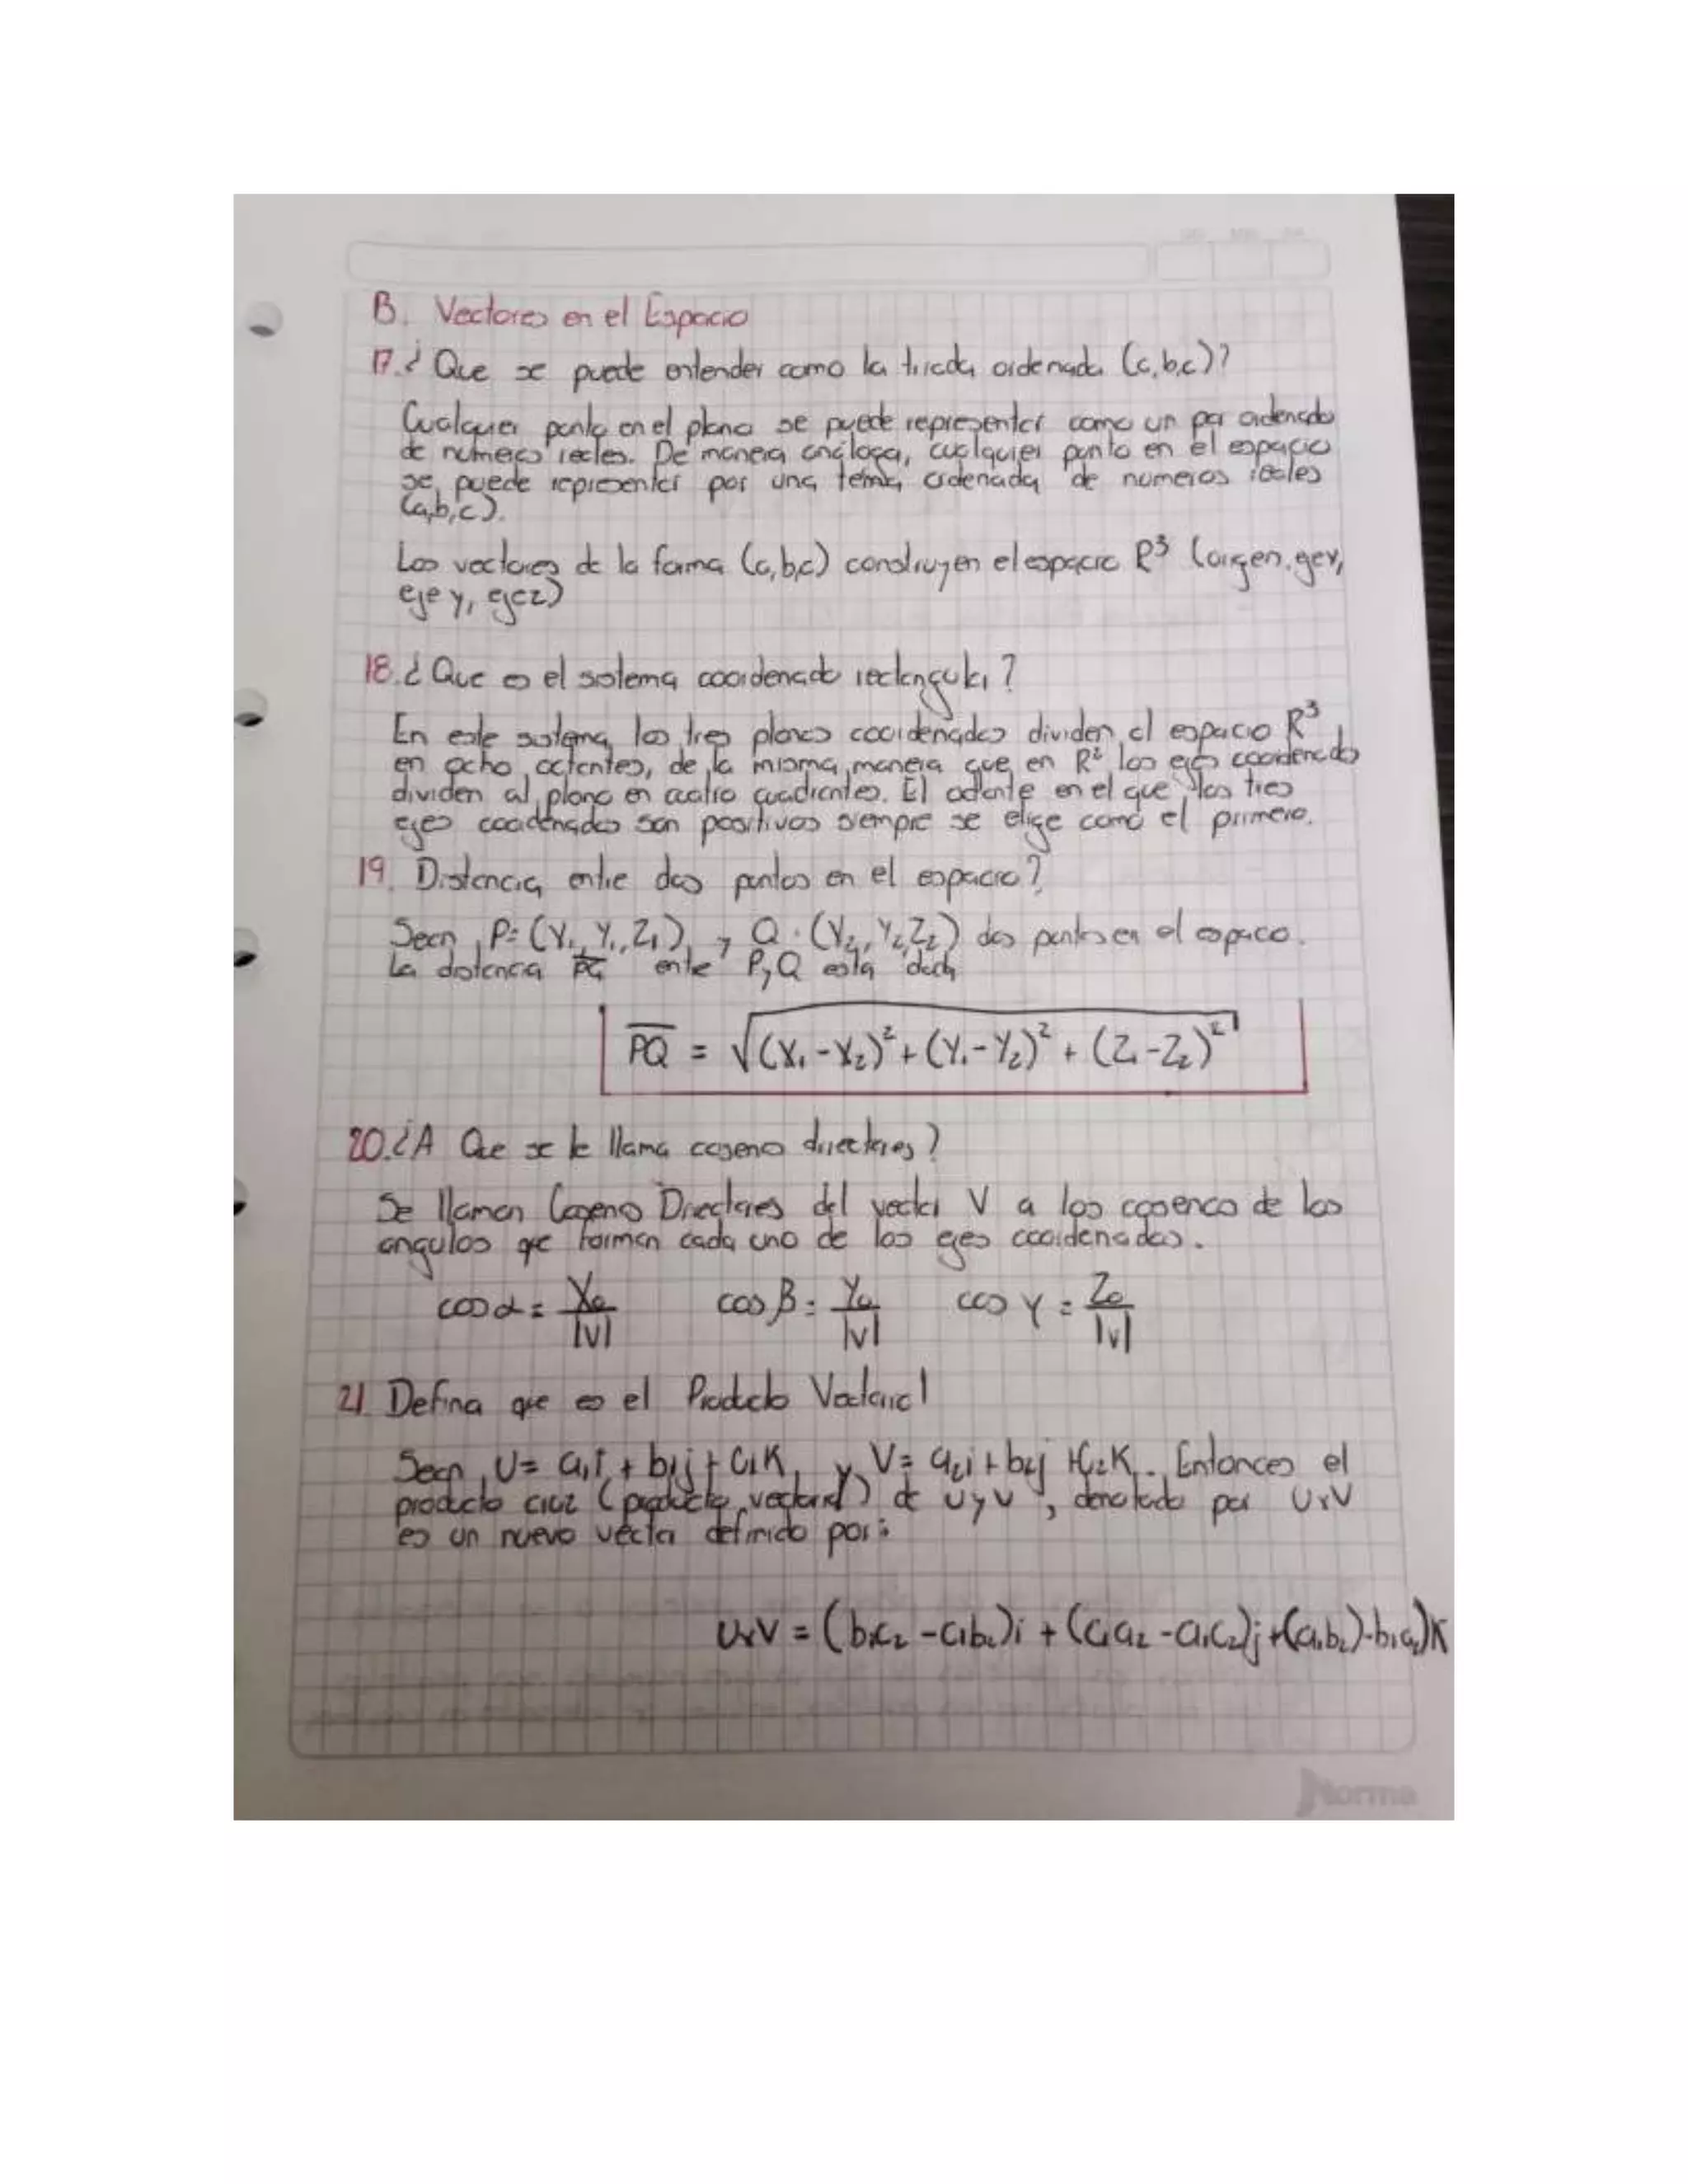 B. Vectores en el Espacio
17. ¿Que se puede entender como la triada ordenada (a,b,c)?
Cualquier punto en el plano se puede representar como un par ordenado
de numeros reales. De manera análoga, cualquier punto en el espacio
se puede representar por una terna ordenada de numeros reales
(a,b,c).
Los vectores de la forma (a,b,c) construyen el espacio R³ (origen, eje x,
eje y, eje z)
18. ¿Que es el sistema coordenado rectangular?
En este sistema, los tres planos coordenados dividen el espacio R³
en ocho octantes, de la misma manera que en R² los ejes coordenados
dividen al plano en cuatro cuadrantes. El octante en el que los tres
ejes coordenados son positivos siempre se elige como el primero.
19. Distancia entre dos puntos en el espacio?
Sean P=(X₁,Y₁,Z₁) y Q=(X₂,Y₂,Z₂) dos puntos en el espacio.
La distancia PQ entre P y Q esta dada
PQ = √(X₁-X₂)²+(Y₁-Y₂)²+(Z₁-Z₂)²
20. ¿A Que se le llama coseno directores?
Se llaman Coseno Directores del vector V a los cosenos de los
angulos que forman cada uno de los ejes coordenados.
cos α = X₀/|v| cos β = Y₀/|v| cos γ = Z₀/|v|
21. Defina que es el Producto Vectorial
Sean U= a₁i + b₁j + c₁K y V= a₂i + b₂j + C₂K. Entonces el
producto cruz (producto vectorial) de U y V, denotado por UxV
es un nuevo vector definido por:
UxV = (b₁c₂ -c₁b₂)i + (c₁a₂ -a₁c₂)j+(a₁b₂)-b₁a₂)K
Norma